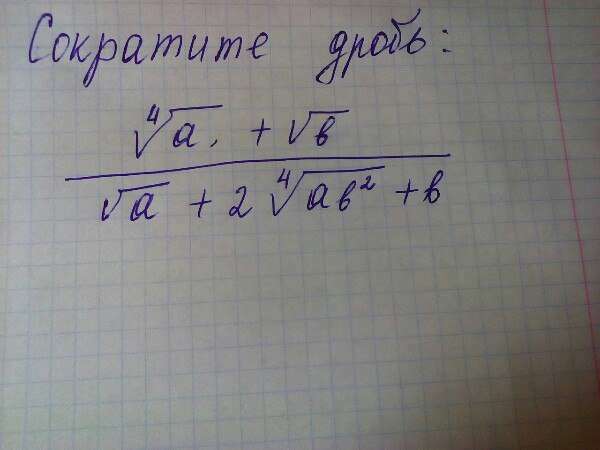 Сократите дробь:
⁴√a + √b
√a + 2 ⁴√ab² + b